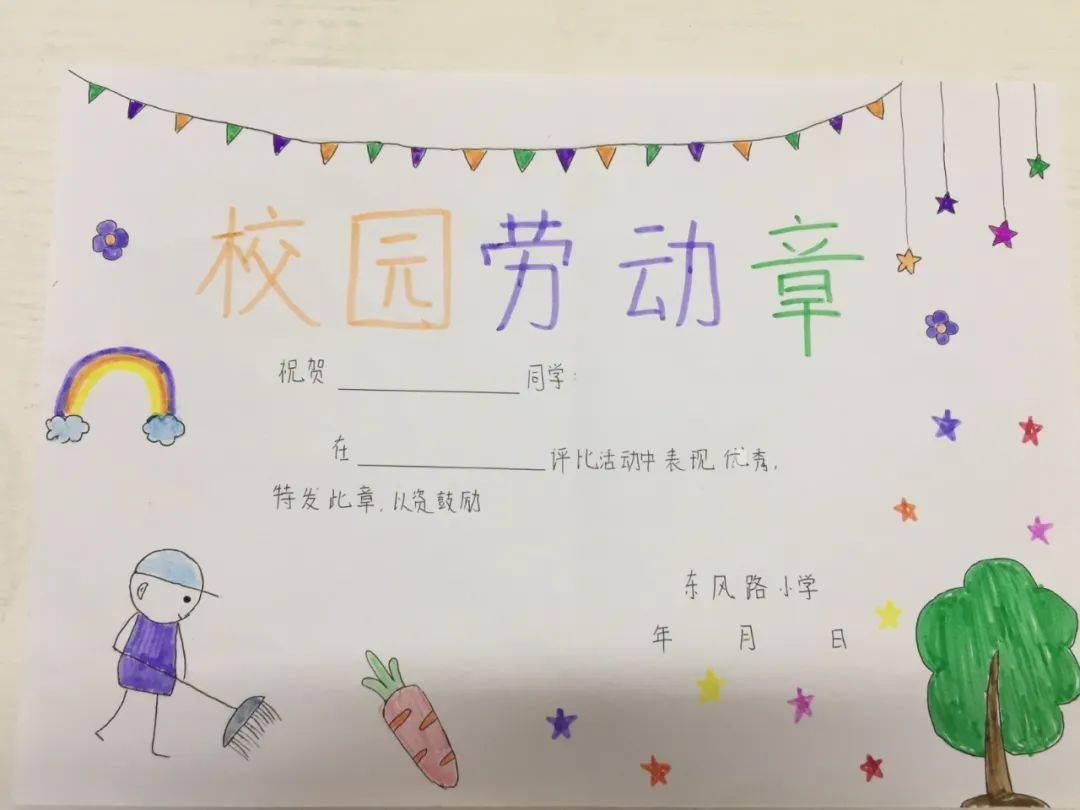 校园劳动章
祝贺__________同学:
在__________评比活动中表现优秀,
特发此章,以资鼓励
东风路小学
年 月 日